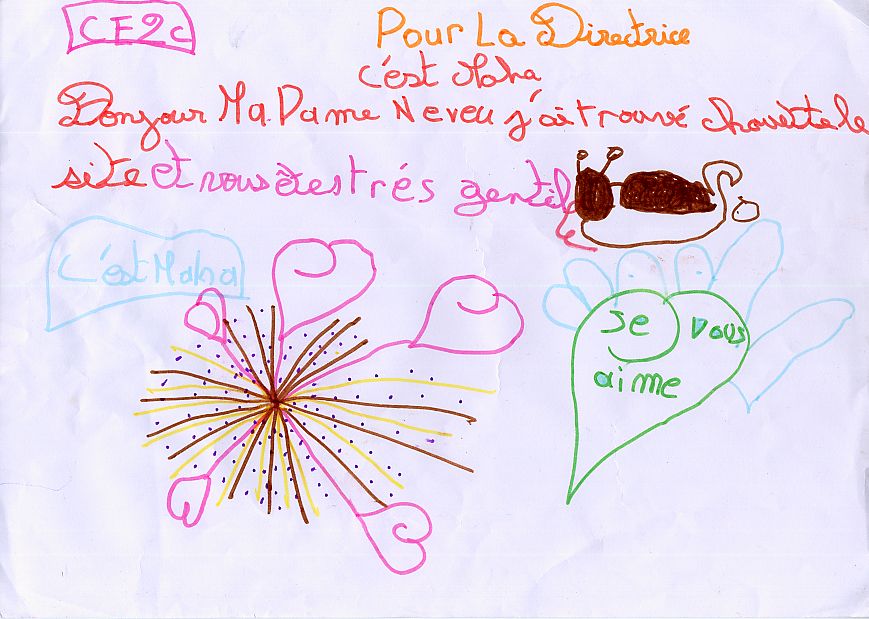 CE2c
Pour La Directrice
c'est Maha
Bonjour Ma Dame Neveu j'ai trouvé chouette le
site et vous êtes trés gentil
C'est Maha
Je vous
aime